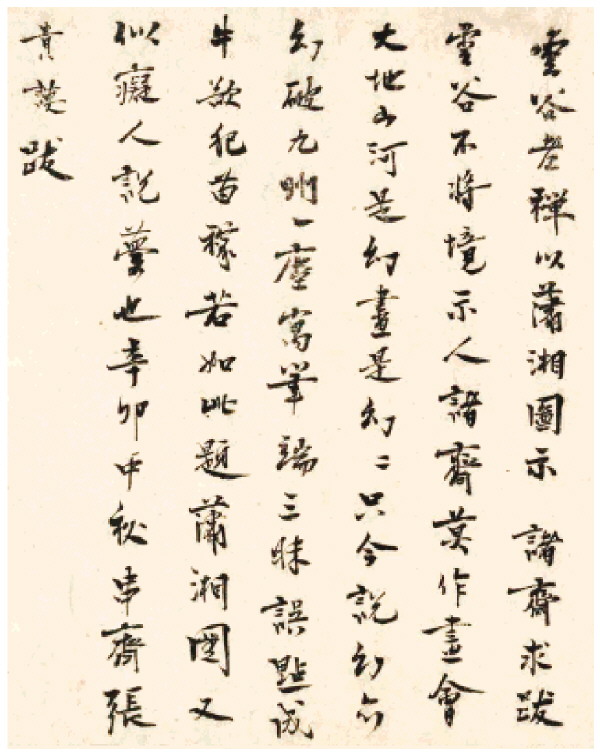 雲谷老禪以蕭湘圖示 諸齋求跋
雲谷不將境示人諸齋莫作畫會
大地山河是幻畫是幻〻只今說幻亦
幻破九州一塵寓筆端三昧誤點成
牛欲犯苗稼若如此題蕭湘圖又
似癡人說夢也辛卯中秋申齋張
貴謨跋